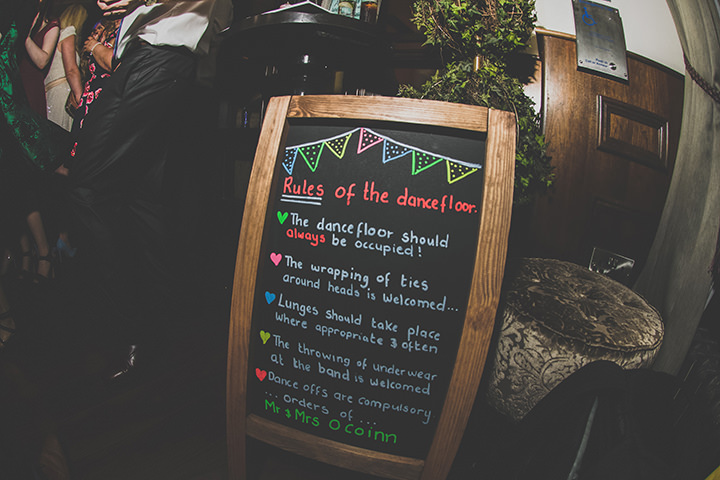 Rules of the dancefloor.
The dancefloor should
always be occupied!
The wrapping of ties
around heads is welcomed...
Lunges should take place
where appropriate & often
The throwing of underwear
at the band is welcomed
Dance offs are compulsory
... orders of ...
Mr & Mrs O Coinn